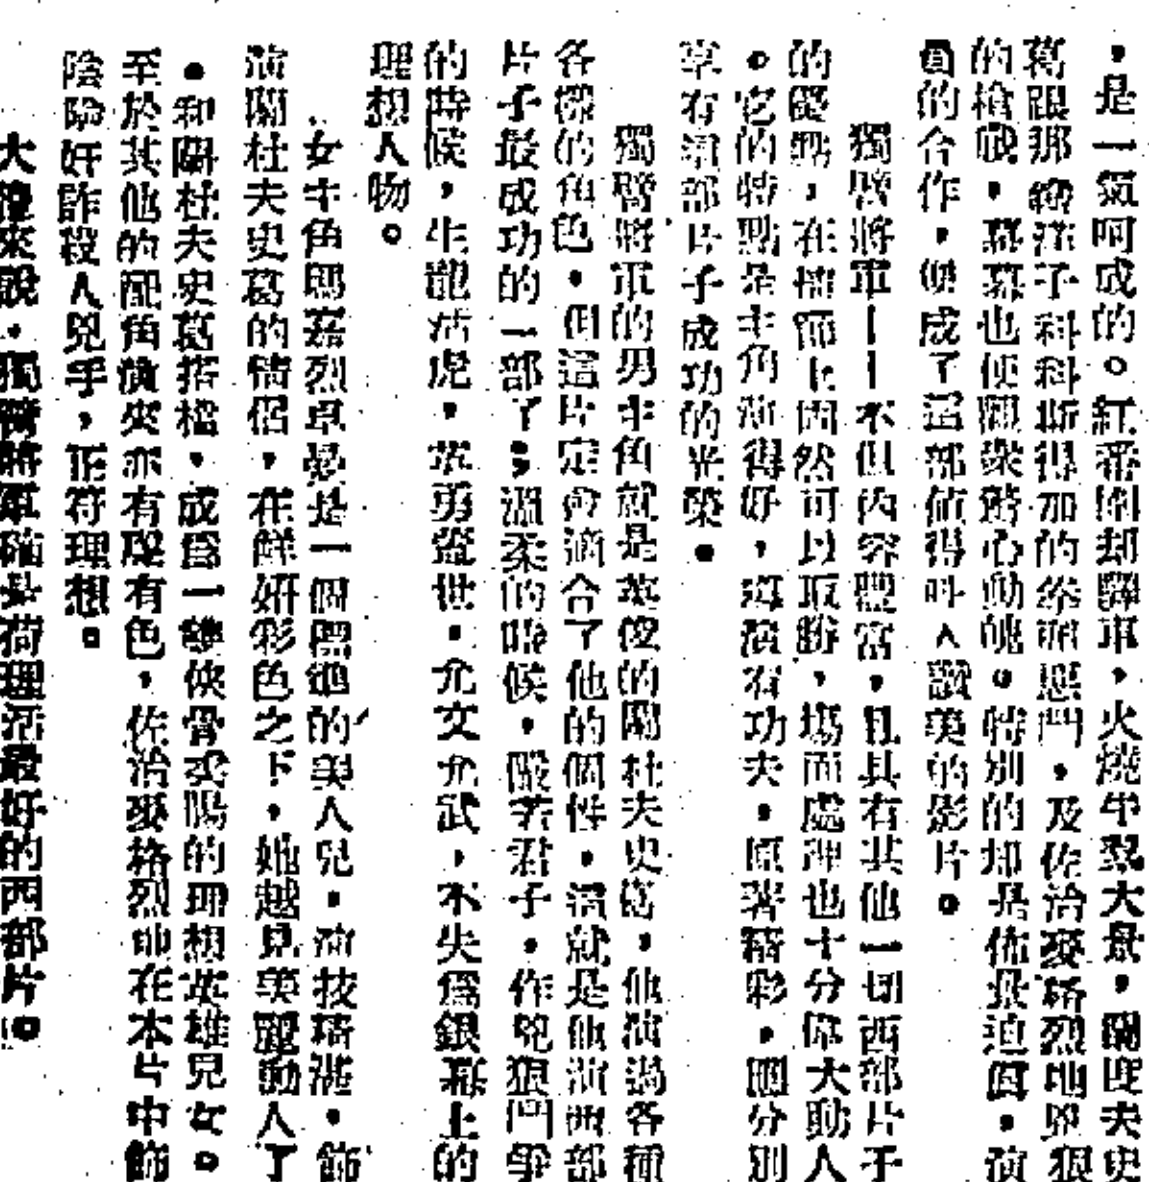 ，是一氣呵成的。紅番圍刼驛車，火燒牛羣大景，關度夫史
葛跟那 科科斯得加的拳 惡鬥，及佐治麥格烈地兇狠
的槍戰，幕幕也使觀衆驚心動魄。特別的却是佈景迫眞，演
員的合作，便成了這部值得叫人讚美的影片。
獨臂將軍——不但內容豐富，且具有其他一切西部片子
的優點，在情節上固然可以取勝，塲面處理也十分偉大動人
。它的特點是主角演得好，導演有功夫，原著精彩，這分別
享有這部片子成功的光榮。
獨臂將軍的男主角就是英俊的關杜夫史葛，他演過各種
各樣的角色，但這片定會適合了他的個性，這就是他演西部
片子最成功的一部了；溫柔的時候，嚴若君子，作兇狠鬥爭
的時候，生龍活虎，英勇蓋世，允文允武，不失爲銀幕上的
理想人物。
女主角瑪嘉烈卓夢是一個 的美人兒，演技精湛，飾
演關杜夫史葛的情侶，在鮮妍彩色之下，她越見美麗動人了
。和關杜夫史葛搭檔，成爲一雙俠骨柔腸的理想英雄兒女。
至於其他的配角演來亦有聲有色，佐治麥格烈地在本片中飾
陰險奸詐殺人兇手，正符理想。
大體來說，獨臂將軍確是荷理活最好的西部片。